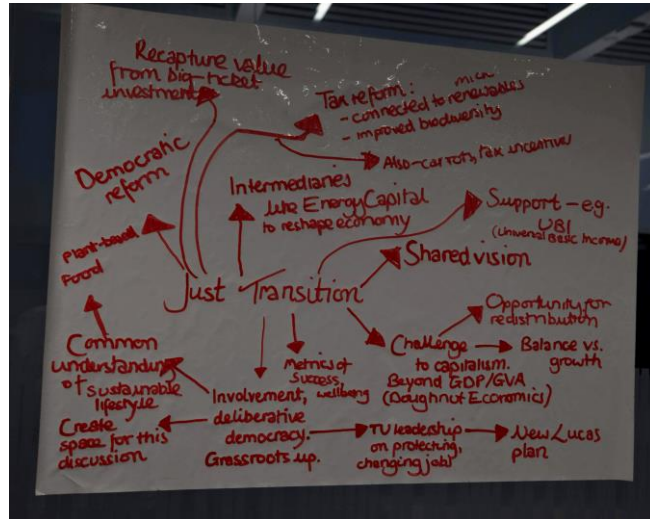 Recapture value
from big-ticket
investments
Tax reform:
- connected to renewables
- improved biodiversity
Also-carrots, tax incentives
Democratic
reform
Intermediaries
like Energy Capital
to reshape economy
Support - e.g.
UBI
(Universal Basic Income)
Plant-based
Food
Shared vision
Just Transition
Opportunity for
redistribution
Common
understanding
of sustainable
lifestyle
Metrics of
success,
wellbeing
Challenge
to capitalism.
Beyond GDP/GVA
(Doughnut Economics)
Balance vs.
growth
Create
space for this
discussion
Involvement,
deliberative
democracy.
Grassroots up.
TU leadership
on protecting,
changing jobs
New Lucas
plan